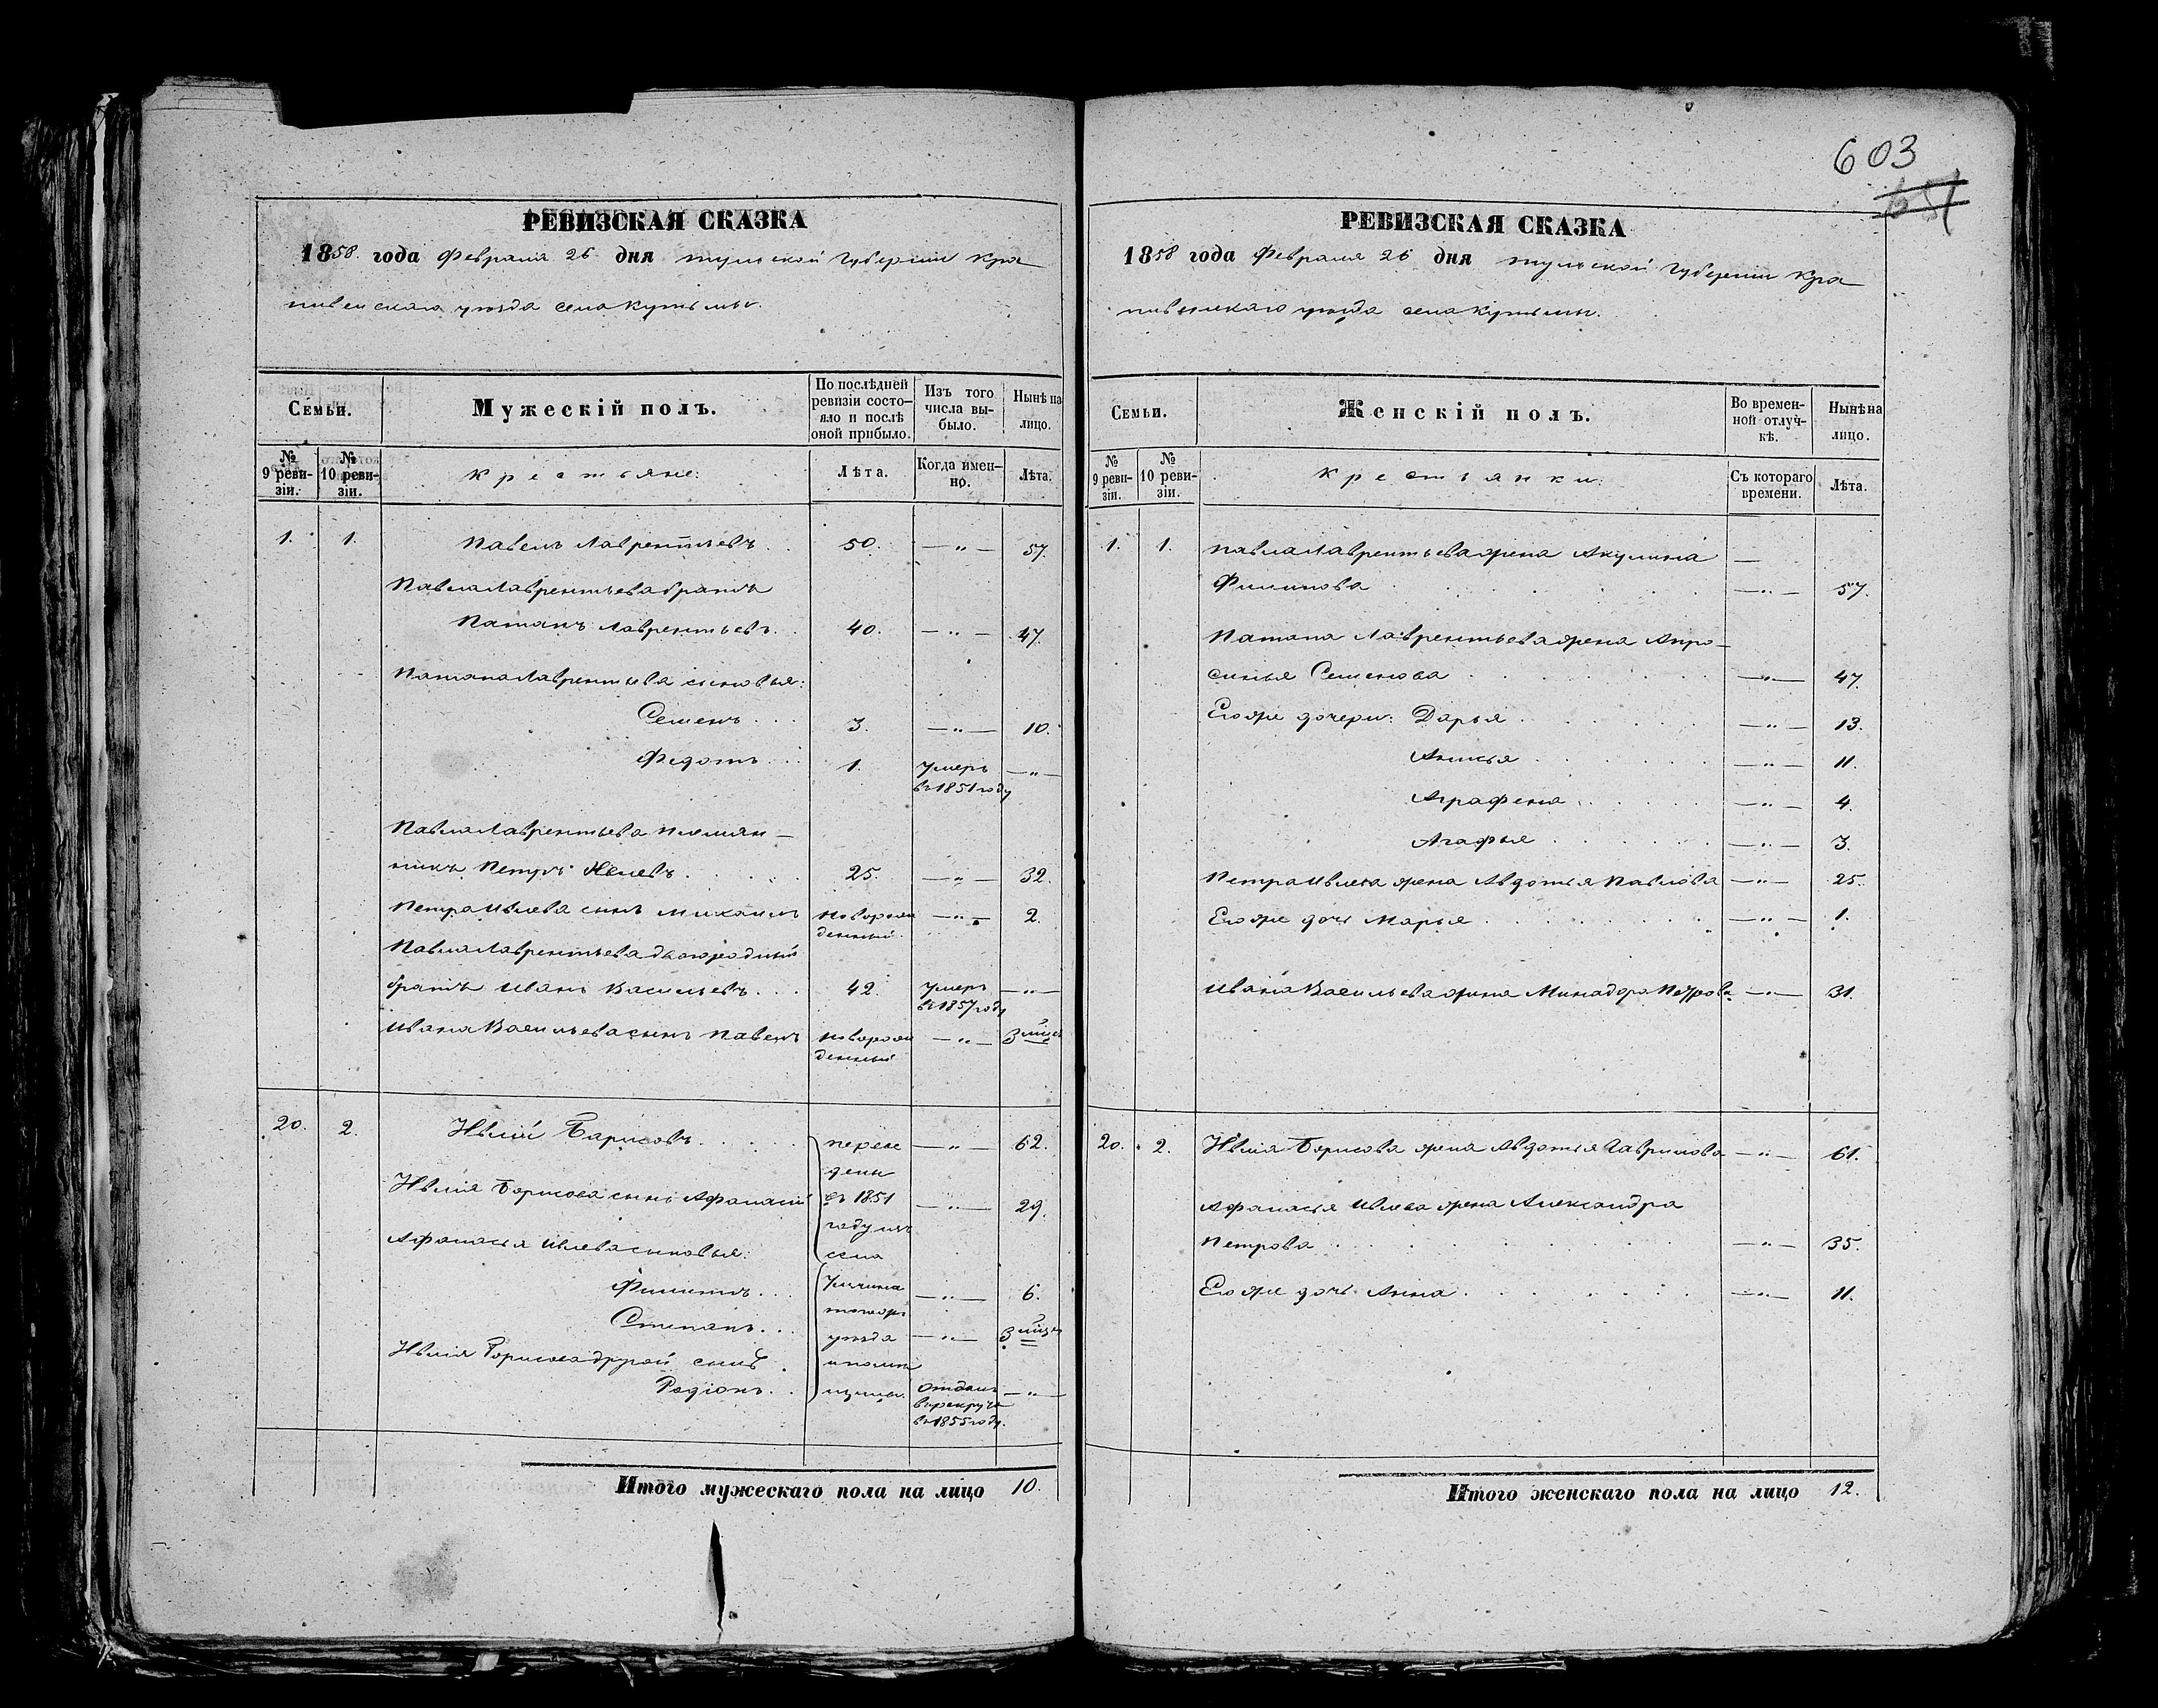 603
651
РЕВИЗСКАЯ СКАЗКА
1858. года Февраля 26 дня тульской Губернии Кра
пивенскаго уѣзда села Кутьмы.
Семьи.
Мужескій полъ.
По послѣдней ревизіи состо-
яло и послѣ оной прибыло.
Изъ того числа вы-
было.
Нынѣ на лицо.
№ 9 реви-
зіи.
№ 10 реви-
зіи.
Крестьяне:
Лѣта.
Когда имен-
но.
Лѣта.
1. 1. Павелъ Лаврентьевъ . . 50. — „ — 57.
Павла Лаврентьева братъ
Патапъ Лаврентьевъ . . 40. — „ — 47.
Патапа Лаврентьева сыновья:
Семенъ . . . 3. — „ — 10.
Федотъ . . . 1. Умеръ — „ —
въ 1851 году
Павла Лаврентьева племян—
никъ Петръ Ивлевъ . . . . . 25. — „ — 32.
Петра Ивлева сынъ Михаилъ новорож — „ — 2.
денный.
Павла Лаврентьева двоюродный
братъ Иванъ Васильевъ . . . 42. Умеръ — „ —
въ 1857 году
Ивана Васильева сынъ Павелъ новорож — „ — 3 мѣся
денный
20. 2. Ивлій Барисовъ . . . . . переве — „ — 62.
дены
Ивлія Борисова сынъ Афанасій въ 1851 — „ — 29.
году изъ
Афанасья Ивлева сыновья: села
Филипъ . . . — „ — 6.
тогожъ
Степанъ . . . уѣзда — „ — 3 мѣся
Ивлія Борисова другой сынъ
Родіонъ . . Отданъ — „ —
в рекруты
въ 1855 году.
Итого мужескаго пола на лицо 10.
РЕВИЗСКАЯ СКАЗКА
1858 года Февраля 26 дня тульской Губернии Кра
пивенскаго уѣзда села Кутьмы.
Семьи.
Женскій полъ.
Во времен-
ной отлуч-
кѣ.
Нынѣ на лицо.
№ 9 реви-
зіи.
№ 10 реви-
зіи.
Крестьянки:
Съ котораго времени.
Лѣта.
1. 1. Павла Лаврентьева жена Акулина —
Филипова . . . . . . — „ — 57.
Патапа Лаврентьева жена Апро—
синья Семенова . . . . . . — „ — 47.
Его же дочери: Дарья . . . . . . — „ — 13.
Анисья . . . . . . — „ — 11.
Аграфена . . . . . — „ — 4.
Агафья . . . . . . — „ — 3.
Петра Ивлева жена Авдотья Павлова — „ — 25.
Его же дочь Марья . . . . . . — „ — 1.
Ивана Васильева жена Минадора Петрова — „ — 31.
20. 2. Ивлія Борисова жена Авдотья Гаврилова — „ — 61.
Афанасья Ивлева жена Александра
Петрова . . . . . . . — „ — 35.
Его же дочь Анна . . . . . . — „ — 11.
Итого женскаго пола на лицо 12.